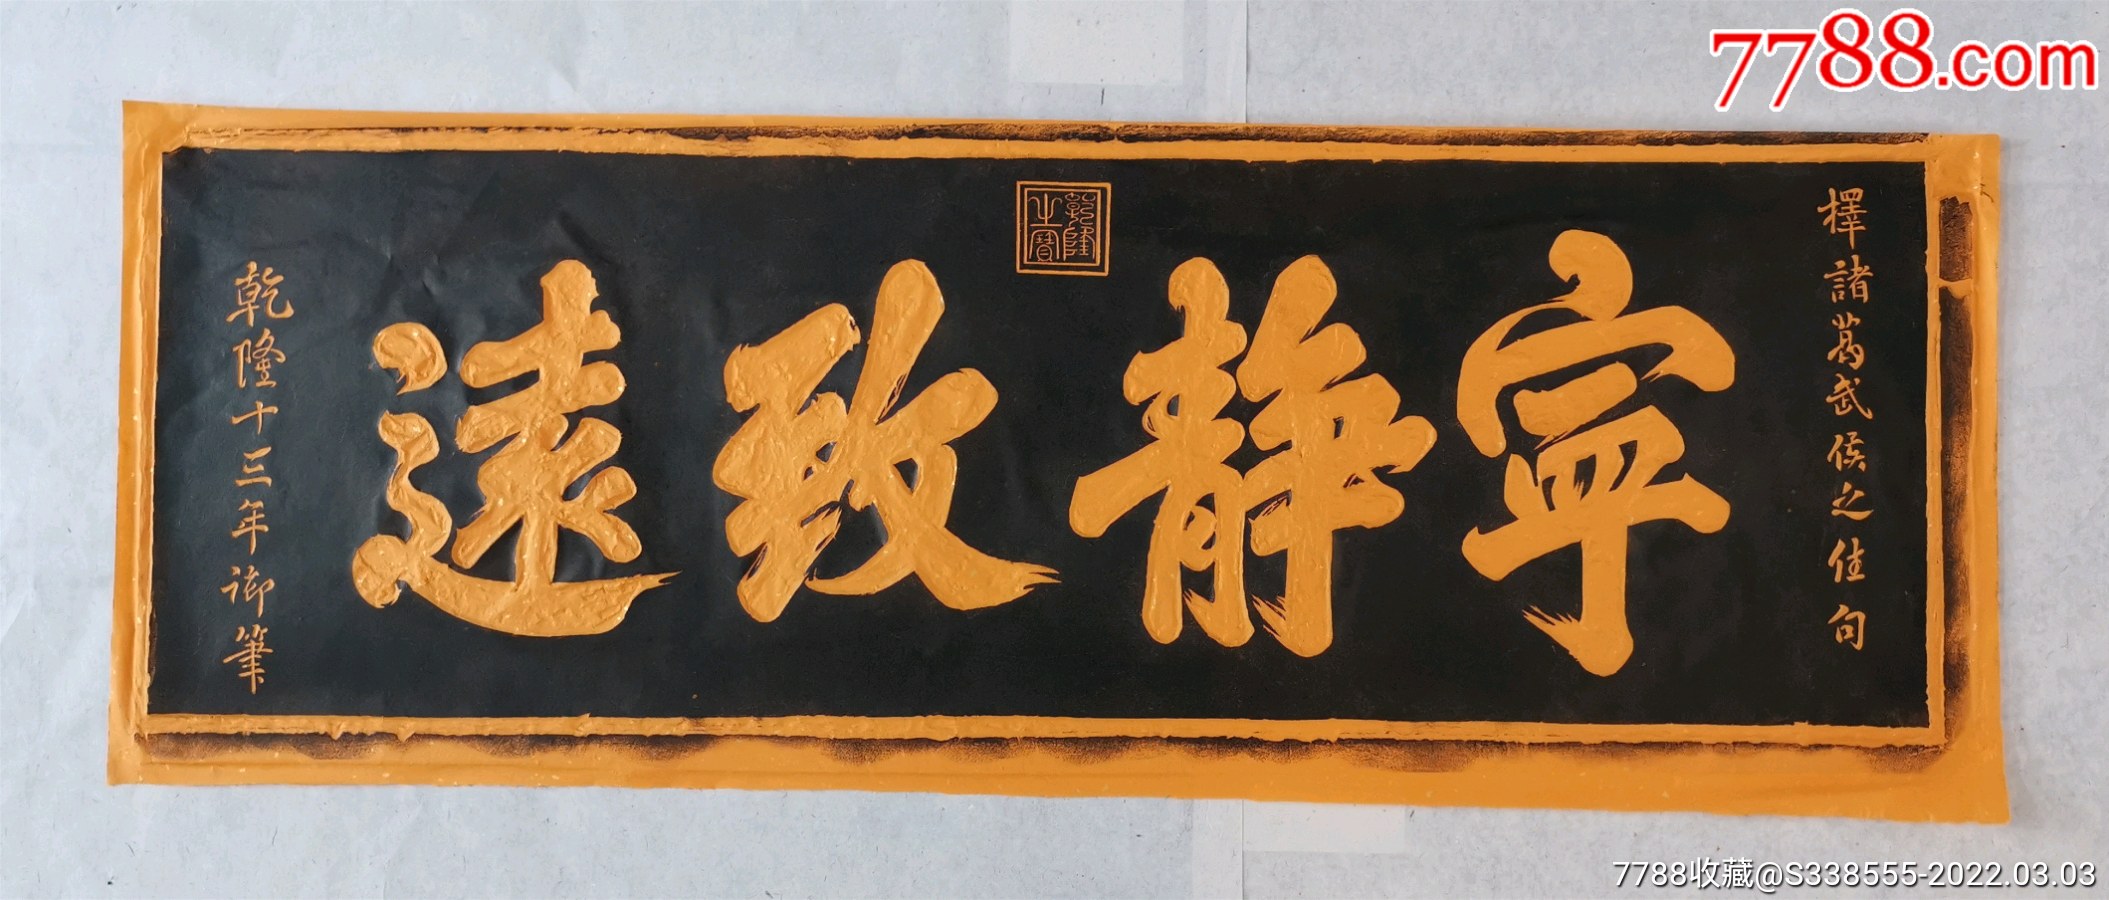 7788.com
擇諸葛武侯之佳句
乾隆之寶
寧靜致遠
乾隆十三年御筆
7788收藏@S338555-2022.03.03